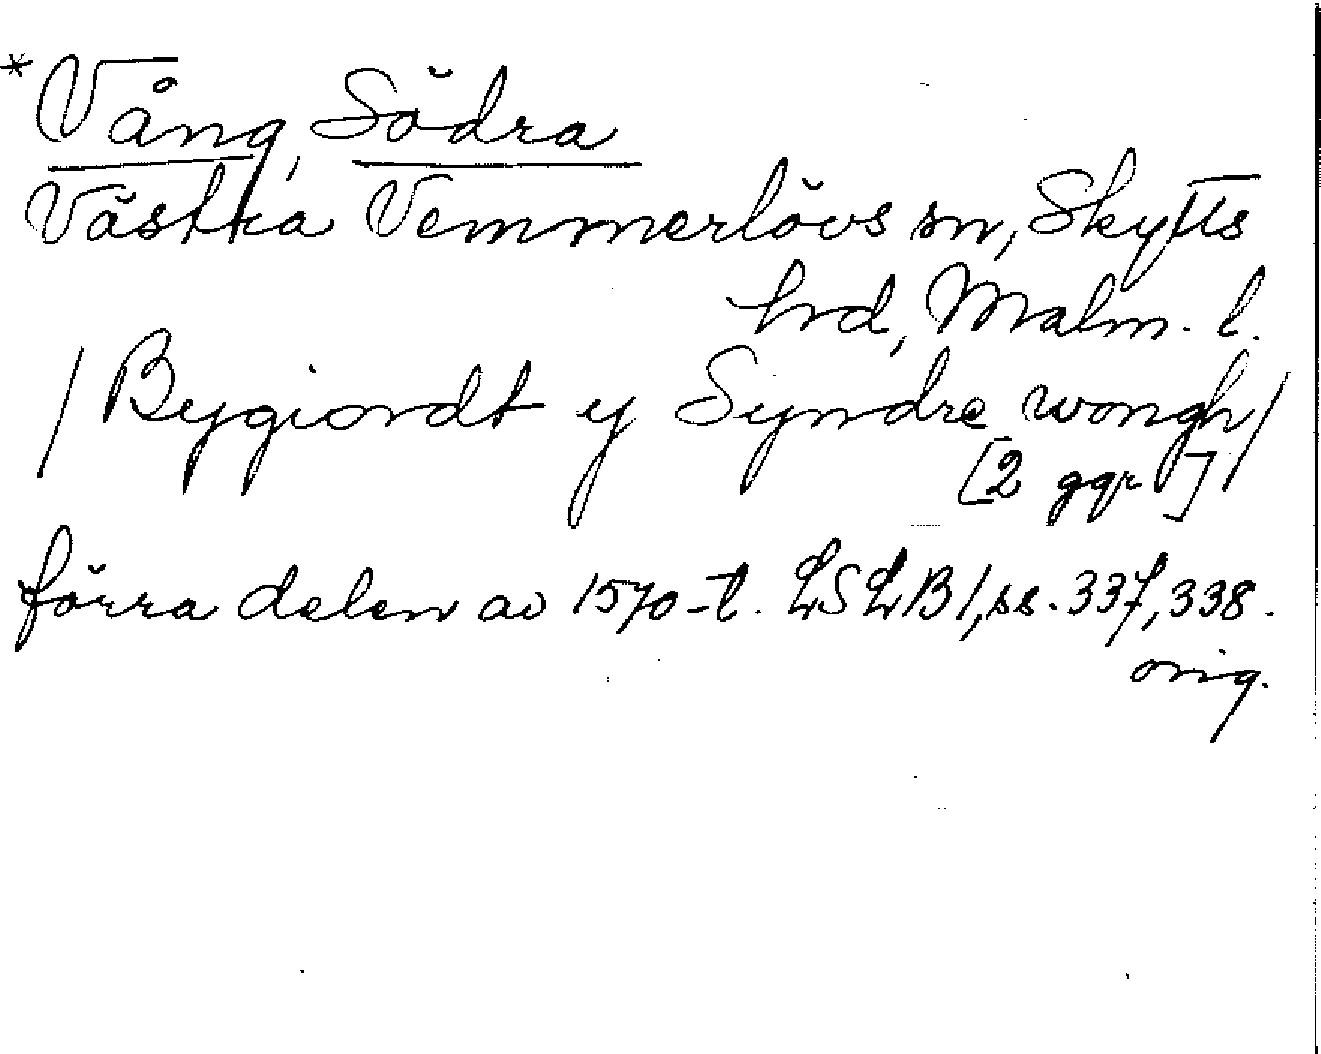 *Vång, Södra
Västra Vemmerlövs sn, Skytts
hrd, Malm. l.
/Bygiordt y Syndre wongh/
[2 ggr]
förra delen av 1570-t. LSLB1, ss. 337, 338.
orig.